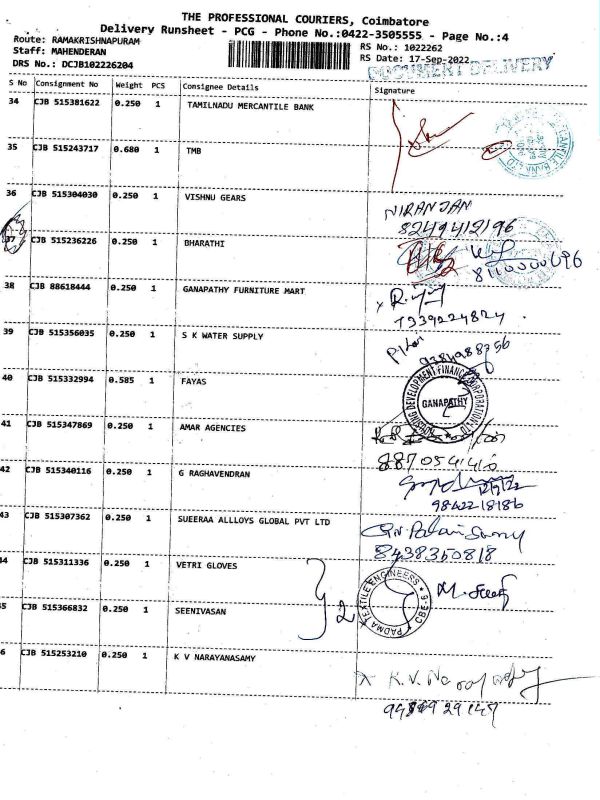 THE PROFESSIONAL COURIERS, Coimbatore
Delivery Runsheet - PCG - Phone No.:0422-3505555 - Page No.:4
Route: RAMAKRISHNAPURAM
Staff: MAHENDERAN
DRS No.: DCJB102226204
RS No.: 1022262
RS Date: 17-Sep-2022
DOCUMENT DELIVERY
S No Consignment No Weight PCS Consignee Details Signature
34 CJB 515381622 0.250 1 TAMILNADU MERCANTILE BANK
35 CJB 515243717 0.680 1 TMB
36 CJB 515304030 0.250 1 VISHNU GEARS
NIRANJAN
8249412196
37 CJB 515236226 0.250 1 BHARATHI
38 CJB 88618444 0.250 1 GANAPATHY FURNITURE MART
7339224824
39 CJB 515356035 0.250 1 S K WATER SUPPLY
40 CJB 515332994 0.585 1 FAYAS
HOUSING DEVELOPMENT FINANCE CORPORATION LTD
GANAPATHY
41 CJB 515347869 0.250 1 AMAR AGENCIES
42 CJB 515340116 0.250 1 G RAGHAVENDRAN
9842218186
43 CJB 515307362 0.250 1 SUEERAA ALLLOYS GLOBAL PVT LTD
8438350818
44 CJB 515311336 0.250 1 VETRI GLOVES
PADMA TEXTILE ENGINEERS CBE-6
45 CJB 515366832 0.250 1 SEENIVASAN
2
46 CJB 515253210 0.250 1 K V NARAYANASAMY